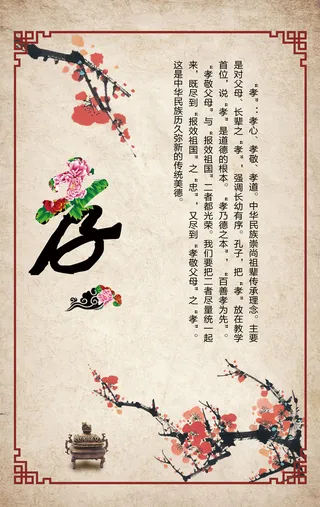 “孝”：孝心、孝敬、孝道。中华民族崇尚祖辈传承理念。主要
是对父母、长辈之“孝”，强调长幼有序。孔子，把“孝”放在教学
首位，说“孝”是道德的根本。“孝乃德之本”，“百善孝为先”。
“孝敬父母”与“报效祖国”二者都光荣。我们要把二者尽量统一起
来，既尽到“报效祖国”之“忠”，又尽到“孝敬父母”之“孝”。
这是中华民族历久弥新的传统美德。
孝